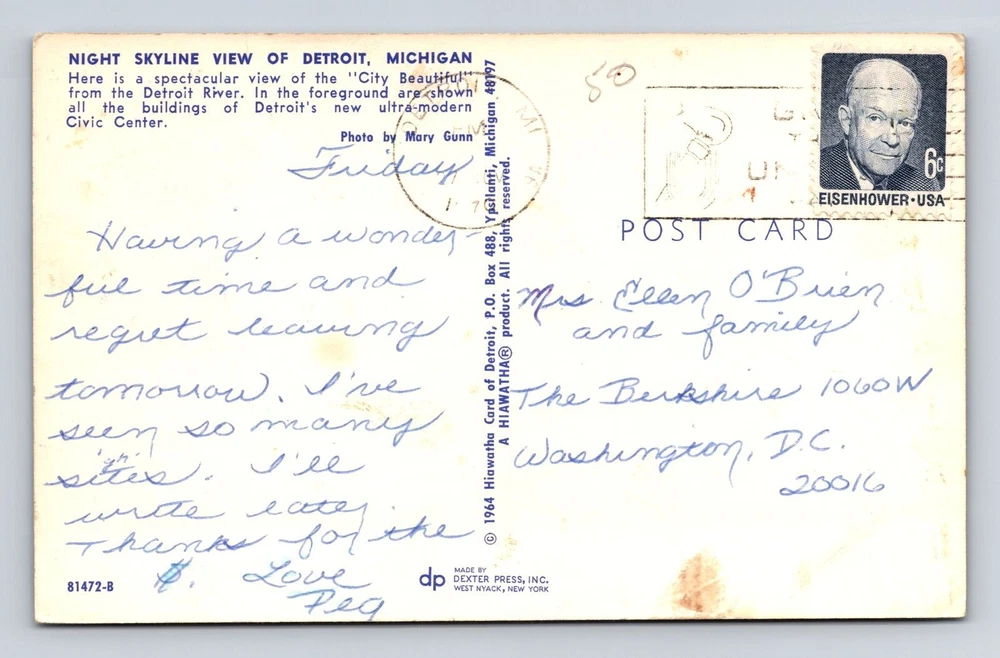 NIGHT SKYLINE VIEW OF DETROIT, MICHIGAN
Here is a spectacular view of the "City Beautiful"
from the Detroit River. In the foreground are shown
all the buildings of Detroit's new ultra-modern
Civic Center.
Photo by Mary Gunn
Friday
Having a wonder-
ful time and
regret leaving
tomorrow. I've
seen so many
sites. I'll
write later.
Thanks for the
$. Love
Peg
81472-B
© 1964 Hiawatha Card of Detroit, P.O. Box 488, Ypsilanti, Michigan 48197
A HIAWATHA® product. All rights reserved.
dp MADE BY
DEXTER PRESS, INC.
WEST NYACK, NEW YORK
50
MI
PM
6c
EISENHOWER·USA
POST CARD
Mrs Ellen O'Brien
and family
The Berkshire 1060W
Washington, D.C.
20016